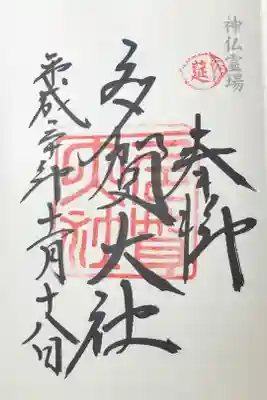 神仏霊場
延
奉拝
多賀大社
平成二十年十一月十八日